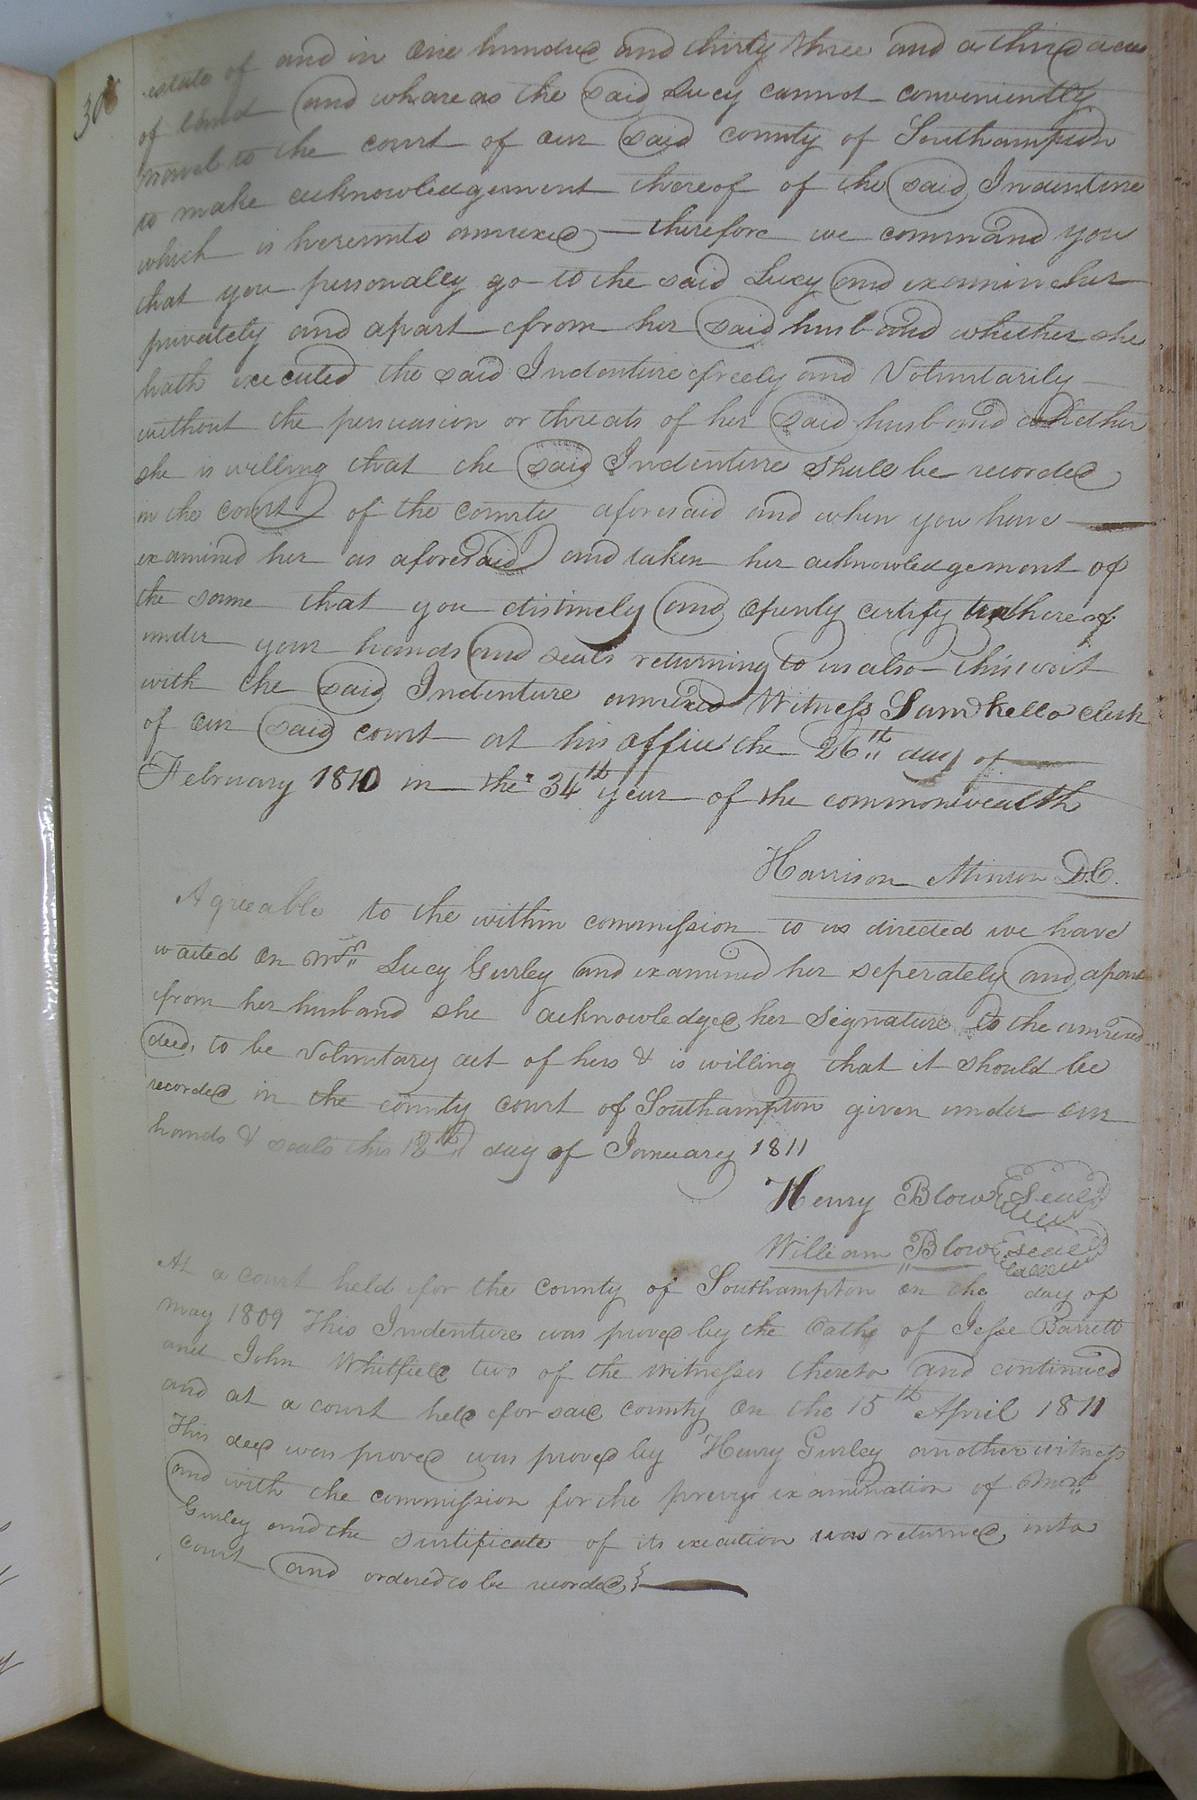 estate of and in One hundred and thirty three and a third acres
of land and whareas the said Lucy cannot conveniently
travel to the court of our said county of Southampton
to make acknowledgement thereof of the said Indenture
which is hereunto annexed — therefore we command you
that you personally go to the said Lucy and examine her
privately and apart from her said husband whether she
hath executed the said Indenture freely and Voluntarily —
without the persuasion or threats of her said husband whether
she is willing that the said Indenture shall be recorded
in the court of the county aforesaid and when you have —
examined her as aforesaid and taken her acknowledgement of
the same that you distinctly and Openly certify us thereof
under your hands and seals returning to us also this writ
with the said Indenture annexed Witness Saml Kello clerk
of our said court at his office the 26th day of —
February 1810 in the 34th year of the commonwealth
Harrison Minson D.C.
Agreeable to the within commission to us directed we have
waited on Mrs Lucy Gurley and examined her seperately and apart
from her husband she acknowledged her Signature to the annexed
deed, to be Voluntary act of hers & is willing that it should be
recorded in the county court of Southampton given under our
hands & seals this 12th day of January 1811
Henry Blow Seal
William Blow seal
At a court held for the county of Southampton on the day of
may 1809 This Indenture was proved by the Oaths of Jesse Barrett
and John Whitfield two of the witnesses thereto and continued
and at a court held for said county On the 15th April 1811
This deed was proved was proved by Henry Gurley another witness
and with the commission for the privy examination of Mrs
Gurley and the surtificate of its execution was returned into
court and ordered to be recorded }—